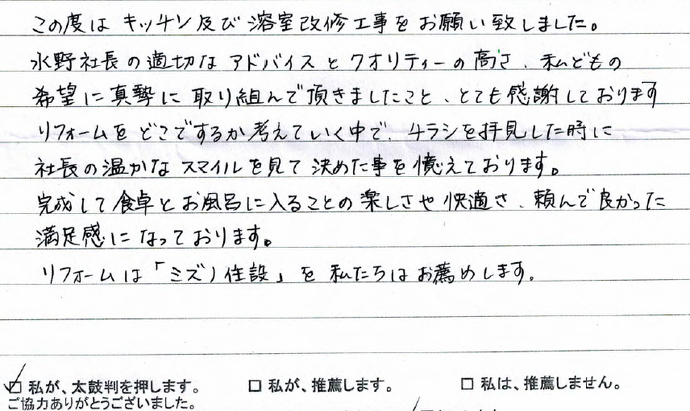 この度は キッチン及び溶室改修工事をお願い致しました。
水野社長の適切なアドバイスとクオリティーの高さ、私どもの
希望に真勢に取り組んで頂きましたこと、とても感謝しております
リフォームをどこでするか考えていく中で、チラシを拝見した時に
社長の温かなスマイルを見て決めた事を憶えております。
完成して食卓とお風呂に入ることの楽しさや快適さ、頼んで良かった
満足感になっております。
リフォームは「ミズノ住設」を私たちはお薦めします。
☑ 私が、太鼓判を押します。 □ 私が、推薦します。 □ 私は、推薦しません。
ご協力ありがとうございました。